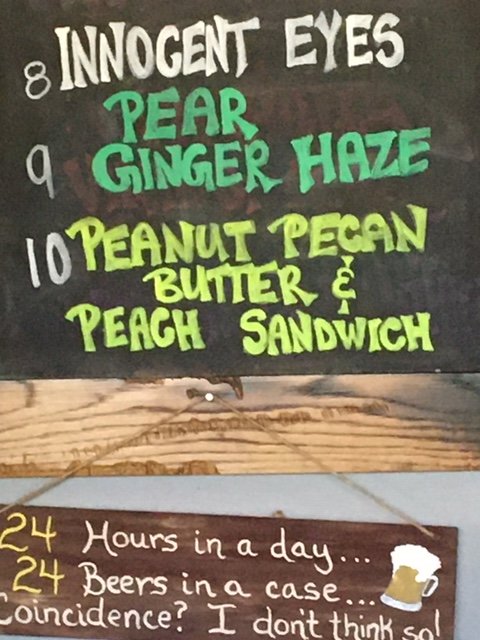 8 INNOCENT EYES
PEAR
9 GINGER HAZE
10 PEANUT PECAN
BUTTER &
PEACH SANDWICH
24 Hours in a day...
24 Beers in a case...
Coincidence? I don't think so!